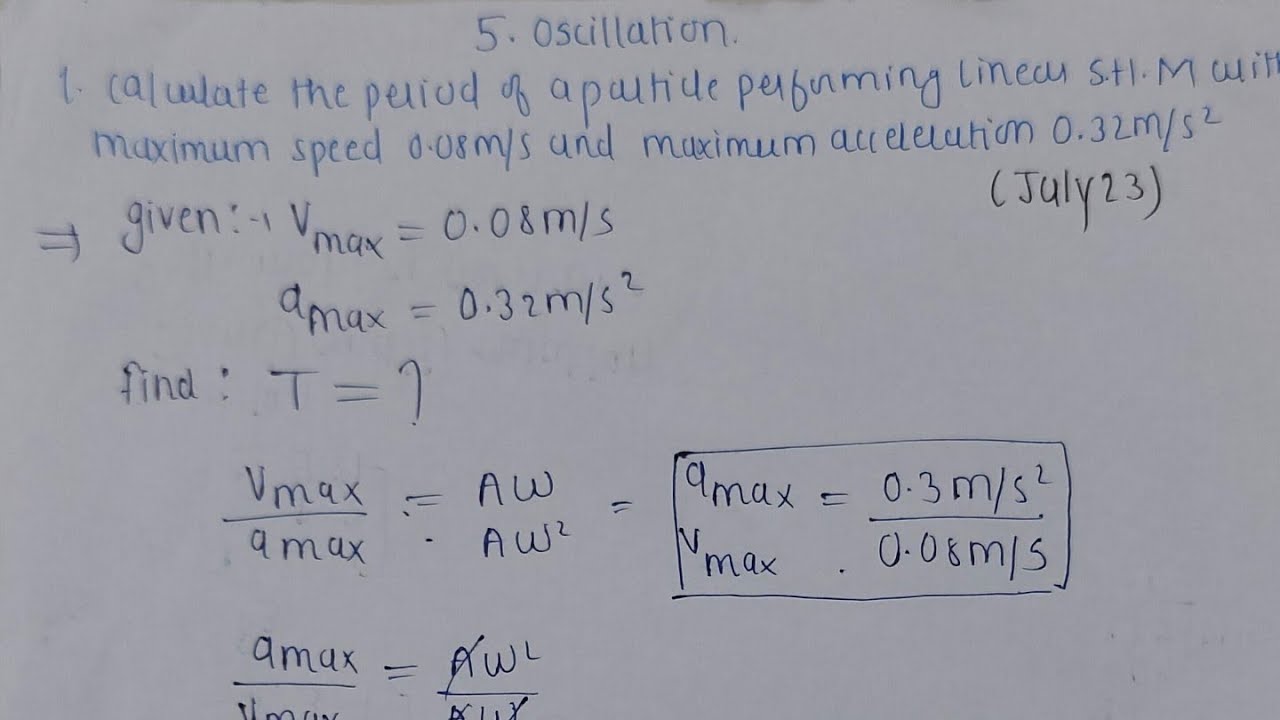 5. Oscillation.
1. Calculate the period of a particle performing linear S.H.M with
maximum speed 0.08m/s and maximum acceleration 0.32m/s²
(July23)
⇒ given:- Vmax = 0.08m/s
amax = 0.32m/s²
find: T = ?
Vmax = AW = amax = 0.3m/s²
amax . AW² Vmax . 0.08m/s
amax = AW²
Vmax AW